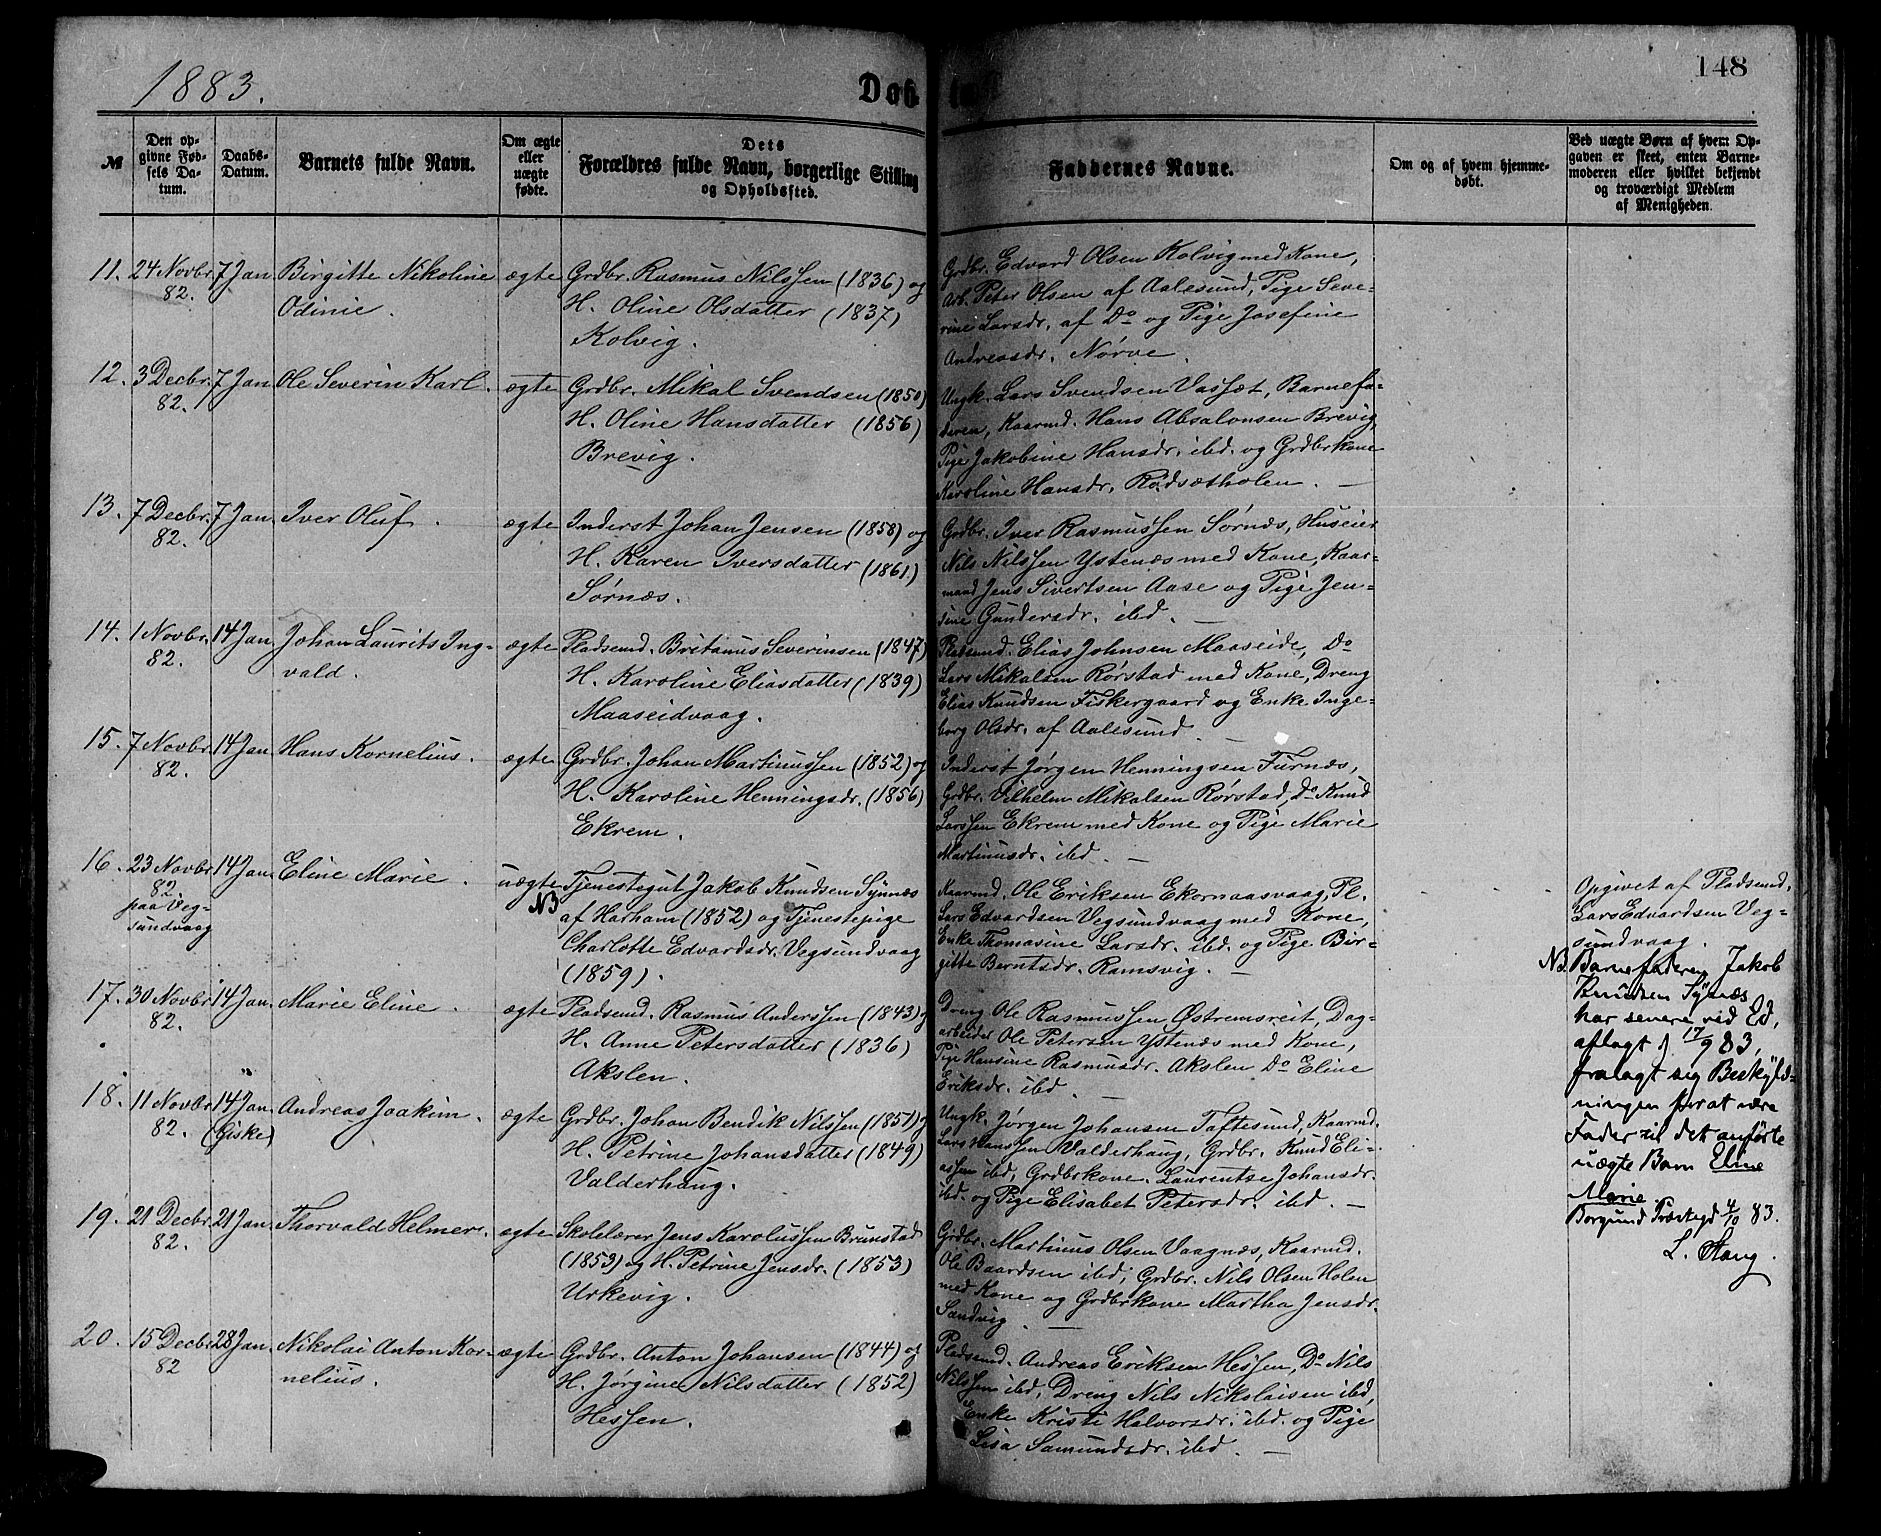 1883.
148
Døb
№
Den op-
givne Fød-
sels Da-
tum.
Daabs-
Datum.
Barnets fulde Navn.
Om ægte
eller
uægte
fødte.
Dets
Forældres fulde Navn, borgerlige Stilling
og Opholdssted.
Faddernes Navne.
Om og af hvem hjemme-
døbt.
Ved uægte Børn af hvem Op-
gaven er skeet, enten Barne-
moderen eller hvilket bekjendt
og troværdigt Medlem
af Menigheden.
11. 24 Novbr. 7 Jan Birgitte Nikoline ægte Grdbr. Rasmus Nilssen (1836) og
82. Odinie. H. Oline Olsdatter (1837)
Kolvig.
Grdbr. Edvard Olsen Kolvig med Kone,
Arb. Peter Olsen af Aalesund, Pige Seve-
rine Larsdr. af Do og Pige Josefine
Andreasdr. Nørve.
12. 3 Decbr. 7 Jan Ole Severin Karl. ægte Grdbr. Mikal Svendsen (1850)
82. H. Oline Hansdatter (1856)
Brevig.
Ungk. Lars Svendsen Vassæt, Barnefa-
deren, Kaarmd. Hans Absalonsen Brevig,
Pige Jakobine Hansdr. ibd. og Grdbrkone
Karoline Hansdr. Rødsætholen. —
13. 7 Decbr. 7 Jan. Iver Oluf. ægte Inderst Johan Jensen (1858) og
82. H. Karen Iversdatter (1861)
Sørnæs.
Grdbr. Iver Rasmussen Sørnæs, Huseier
Nils Nilssen Ystenæs med Kone, Kaar-
mand Jens Sivertsen Aase og Pige Jen-
sine Gundersdr. ibd. —
14. 1 Novbr. 14 Jan. Johan Laurits Ing- ægte Pladsmd. Britanus Severinsen (1847)
82. vald. H. Karoline Eliasdatter (1839)
Maaseidvaag.
Pladsmd. Elias Johnsen Maaseide, Do
Lars Mikalsen Rørstad med Kone, Dreng
Elias Knudsen Fiskergaard og Enke Inge-
borg Olsdr. af Aalesund. —
15. 7 Novbr. 14 Jan Hans Kornelius. ægte Grdbr. Johan Martinussen (1852) og
82. H. Karoline Henningsdr. (1856)
Ekrem.
Inderst Jørgen Henningsen Furnæs,
Grdbr. Vilhelm Mikalsen Rørstad, Do Knud
Larssen Ekrem med Kone og Pige Marie
Martinusdr. ibd. —
16. 23 Novbr 14 Jan. Eline Marie. uægte Tjenestegut Jakob Knudsen Synnæs
82 NB af Harham (1852) og Tjenestepige
paa Veg- Charlotte Edvardsdr. Vegsundvaag
sundvaag (1859).
Kaarmd. Ole Eriksen Ekornaasvaag, Pl.
Lars Edvardsen Vegsundvaag med Kone,
Enke Thomasine Larsdr. ibd. og Pige Bir-
gitte Berntsdr. Ramsvig. —
Opgivet af Pladsmd.
Lars Edvardsen Veg-
sundvaag.
NB. Barnefaderen Jakob
Knudsen Synæs
har senere ved Ed,
aflagt 17/9 83,
fralagt sig Beskyld-
ningen for at være
Fader til det anførte
uægte Barn Eline
Marie.
Borgund Præstegd 4/10 83.
L. Stang.
17. 30 Novbr 14 Jan. Marie Eline. ægte Pladsmd. Rasmus Anderssen (1843) og
82. H. Anne Petersdatter (1836)
Akslen.
Dreng Ole Rasmussen Østremsreit, Dag-
arbeider Ole Petersen Ystenæs med Kone,
Pige Hansine Rasmusdr. Akslen Do Eline
Eriksdr. ibd. —
18. 11 Novbr 14 Jan. Andreas Joakim. ægte Grdbr. Johan Bendik Nilssen (1851) og
82. (Giske) H. Petrine Johansdatter (1849)
Valderhaug.
Ungk. Jørgen Johansen Taftesund, Kaarmd.
Lars Hanssen Valderhaug, Grdbr. Knud Eli-
assen ibd, Grdbrkone. Laurentse Johansdr.
ibd. og Pige Elisabet Petersdr. ibd. —
19. 21 Decbr. 21 Jan. Thorvald Helmer. ægte Skolelærer Jens Karolussen Brunstad
82. (1853) og H. Petrine Jensdr. (1853)
Urkevig.
Grdbr. Martinus Olsen Vaagnæs, Kaarmd.
Ole Baardsen ibd, Grdbr. Nils Olsen Holen
med Kone og Grdbrkone Martha Jensdr.
Sandvig. —
20. 15 Decbr 28 Jan. Nikolai Anton Kor- ægte Grdbr. Anton Johansen (1844) og
82 nelius. H. Jørgine Nilsdatter (1852)
Hessen.
Pladsmd. Andreas Eriksen Hessen, Do Nils
Nilssen ibd, Dreng Nils Nikolaisen ibd,
Enke Kristi Halvorsdr. ibd. og Pige
Lisa Samundsdr. ibd. —